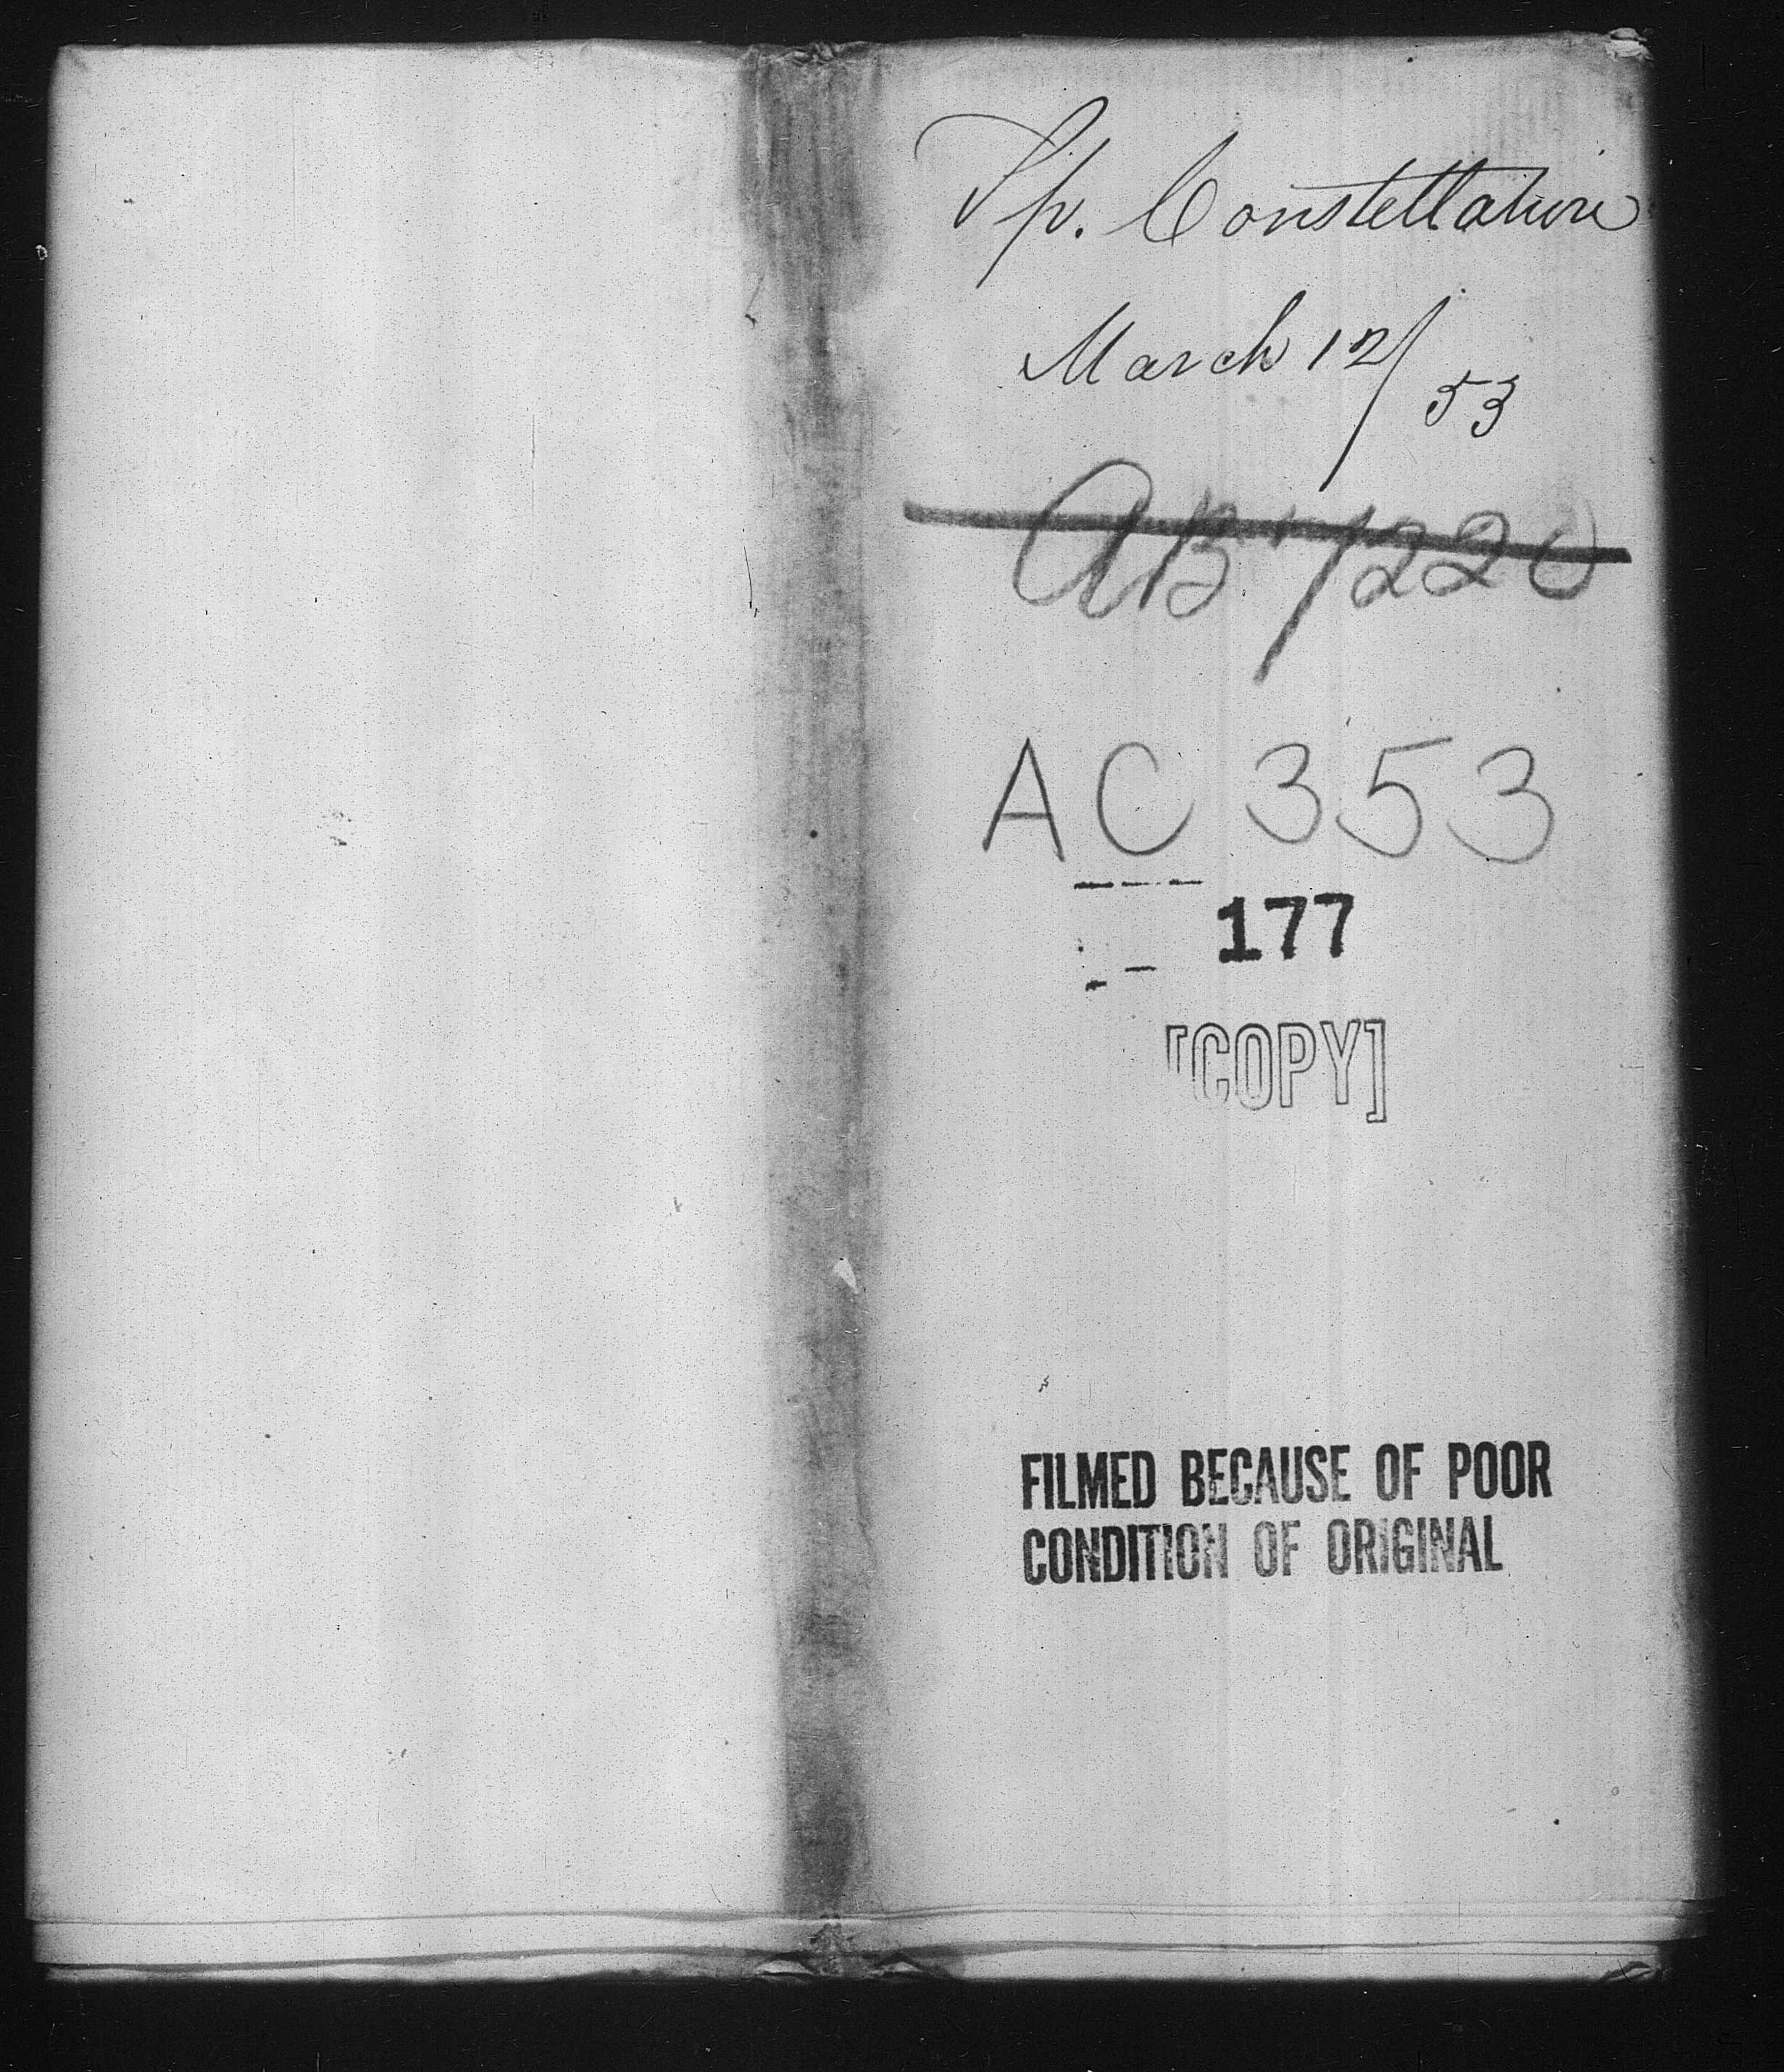 Sp. Constellation
March 12/53
AB 1220
AC 353
177
[COPY]
FILMED BECAUSE OF POOR
CONDITION OF ORIGINAL